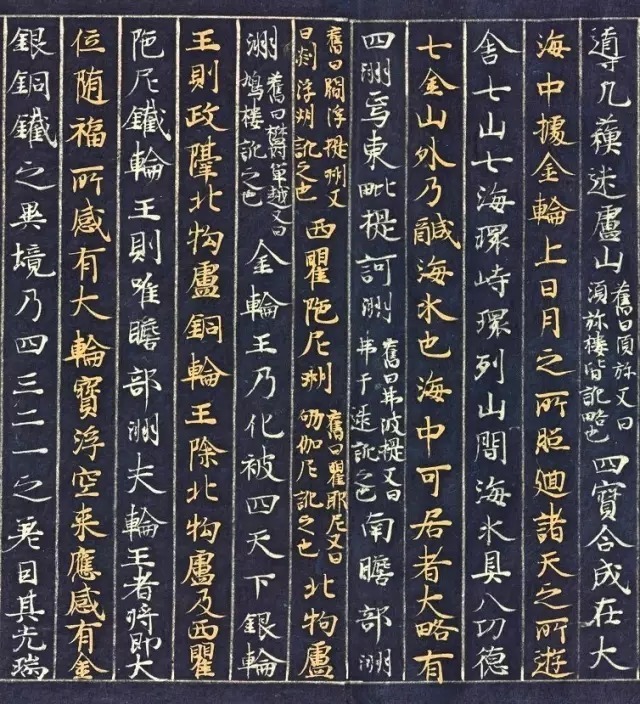 導凡蘇迷盧山舊曰須弥又曰須弥樓皆訛略也四寶合成在大
海中據金輪上日月之所照迴諸天之所遊
舍七山七海環峙環列山間海水具八功德
七金山外乃醎海水也海中可居者大略有
四洲焉東毗提訶洲舊曰弗波提又曰弗于逮訛之也南瞻部洲
舊曰閻浮提洲又曰剡浮州訛之也西瞿陁尼洲舊曰瞿耶尼又曰劬伽尼訛之也北拘盧
洲舊曰欝單越又曰鳩樓訛之也金輪王乃化被四天下銀輪
王則政隔北拘盧銅輪王除北拘盧及西瞿
陁尼鐵輪王則唯瞻部洲夫輪王者將即大
位随福所感有大輪寶浮空来應感有金
銀銅鐵之異境乃四三二一之差因其先瑞